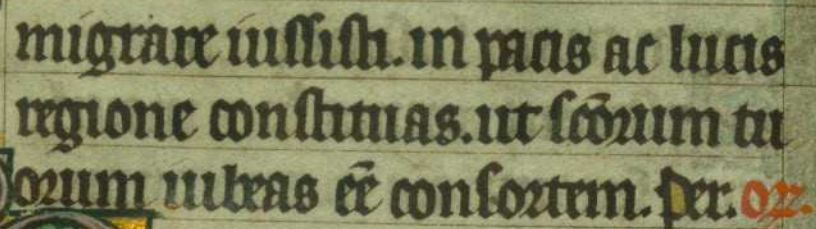 migrare iussisti. in pacis ac lucis
regione constituas. ut sc̄orum tu
orum iubeas ēē consortem. Per. or̄.